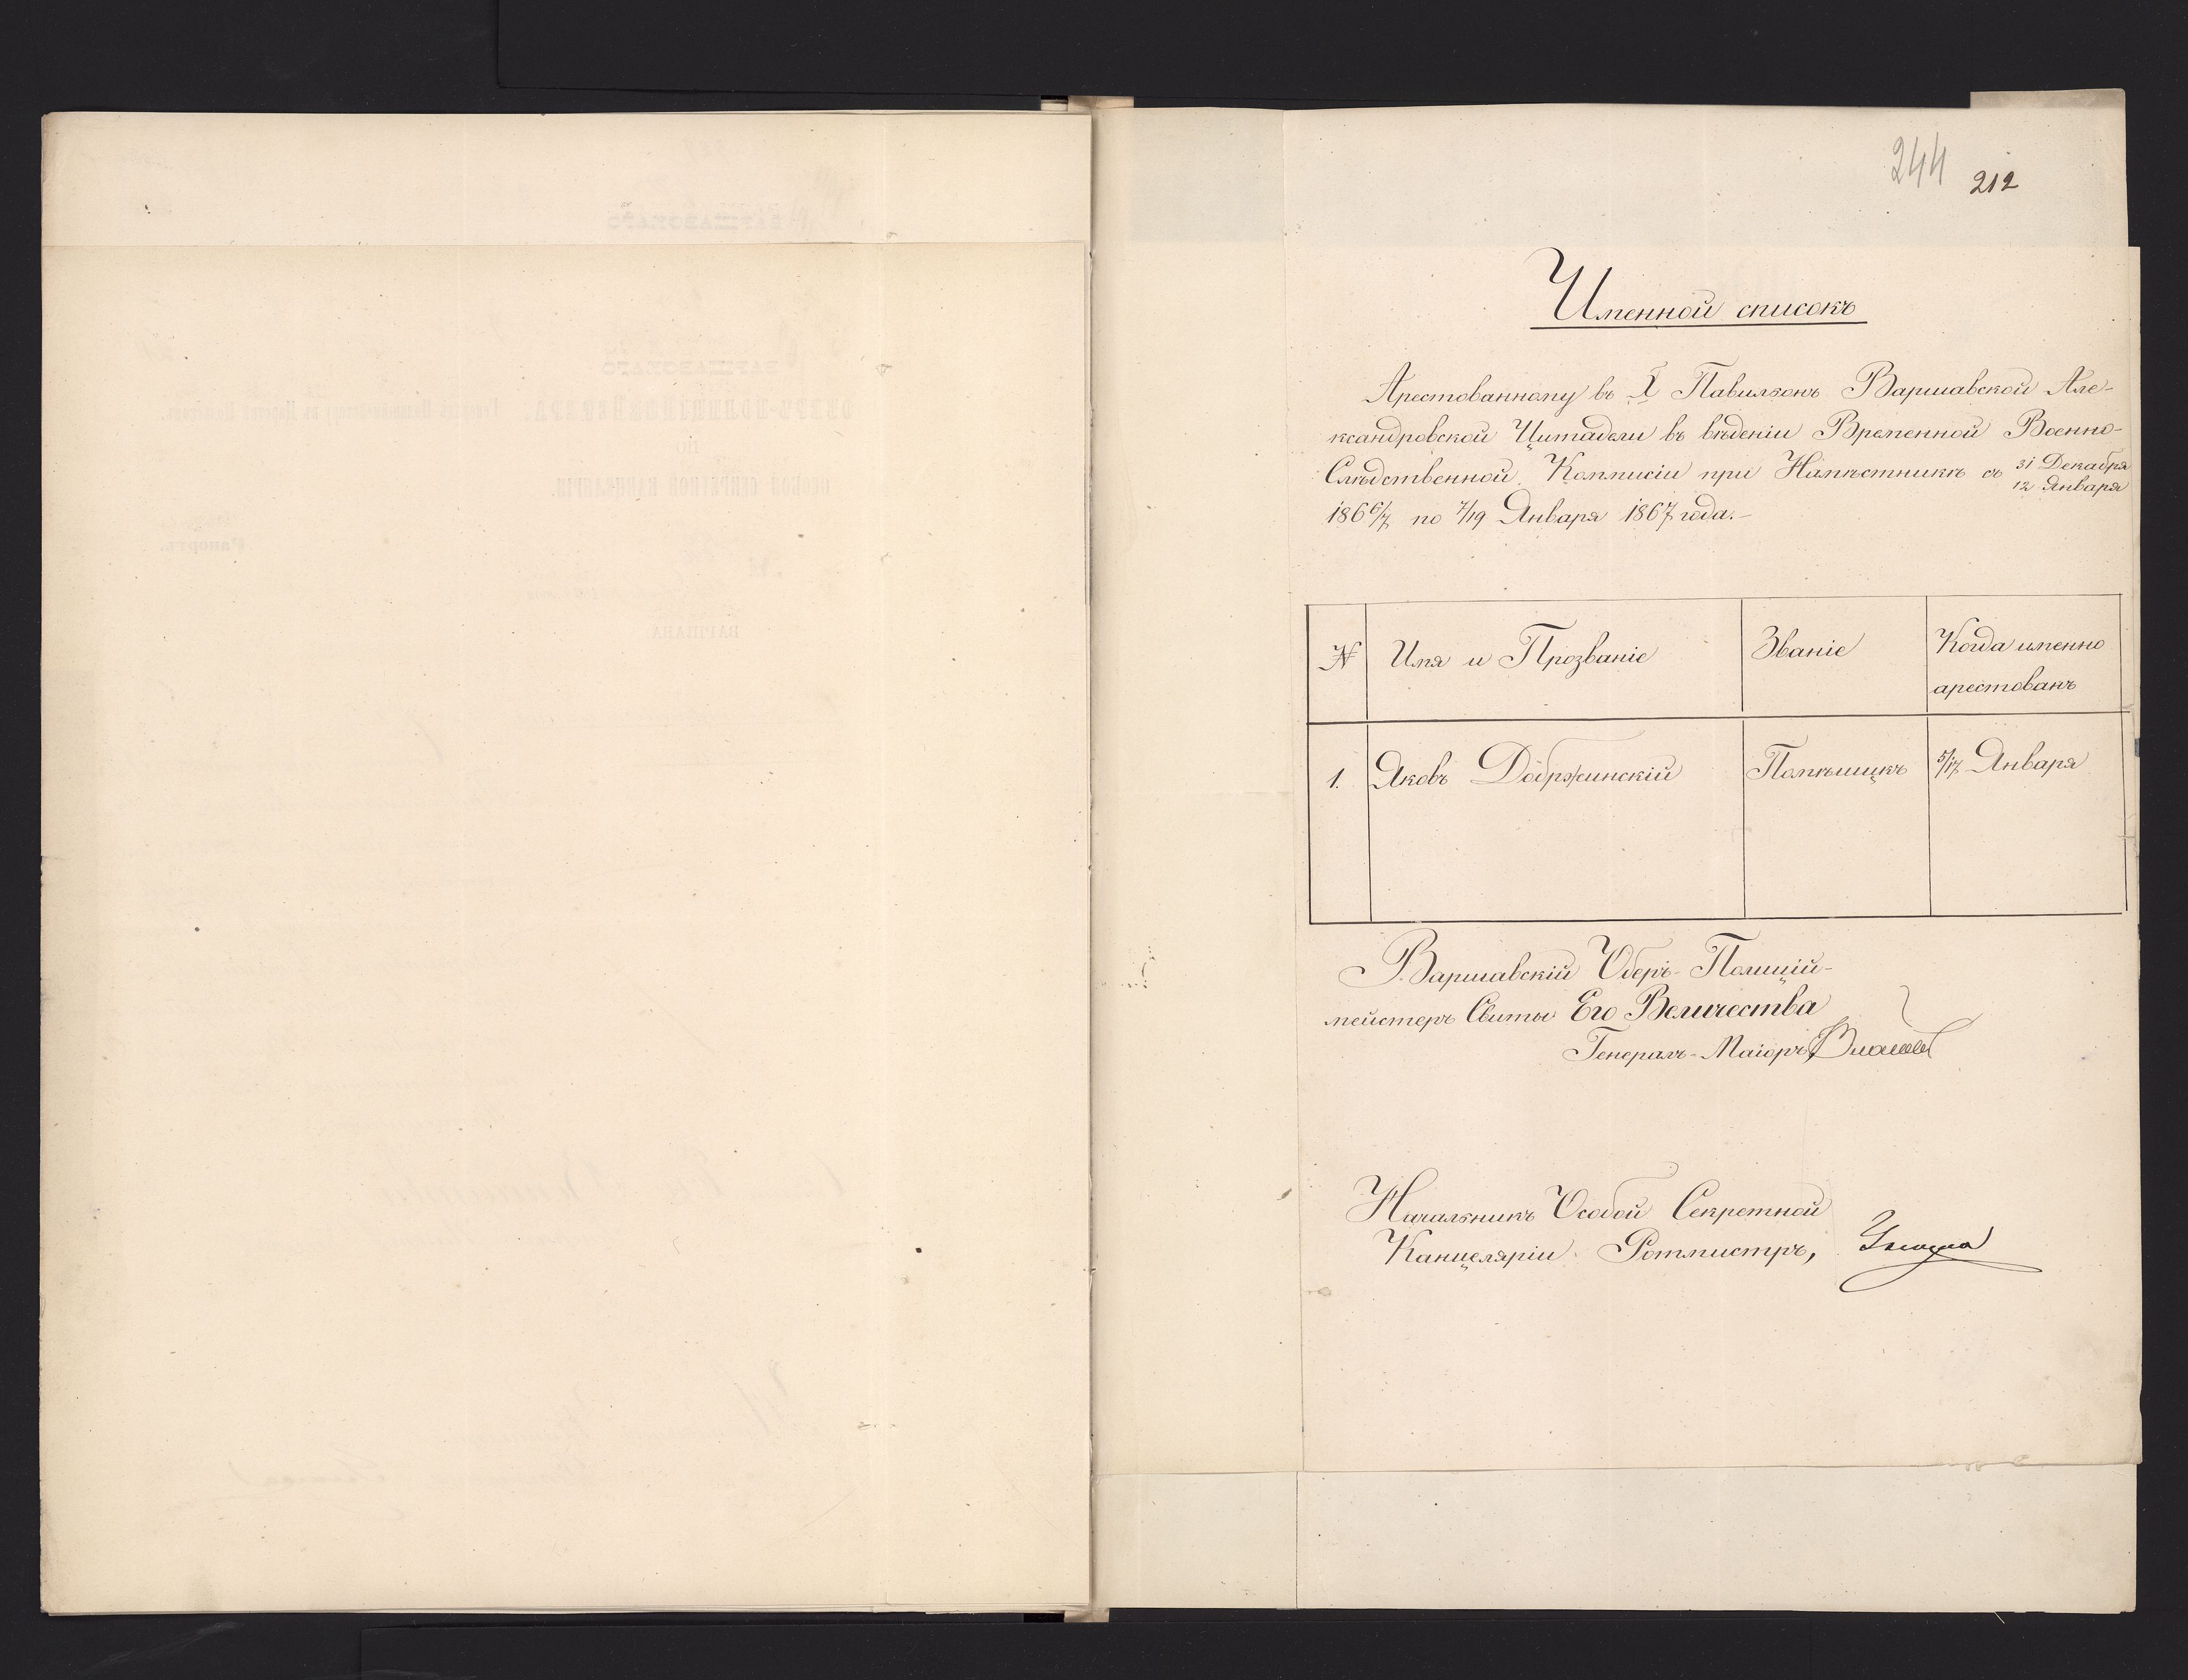 244 212
Именной списокъ
Арестованному въ X Павильонъ Варшавской Але-
ксандровской Цитадели въ вѣденіи Временной Военно-
Слѣдственной Коммисіи при Намѣстникѣ съ 31 Декабря / 12 Января
1866/7 по 7/19 Января 1867 года.-
№ Имя и Прозваніе Званіе Когда именно
арестованъ
1. Яковъ Добржинскій Помѣщикъ 5/17 Января
Варшавскій Оберъ-Полицій-
мейстеръ Свиты Его Величества
Генералъ-Маіоръ
Начальникъ Особой Секретной
Канцеляріи Ротмистръ,